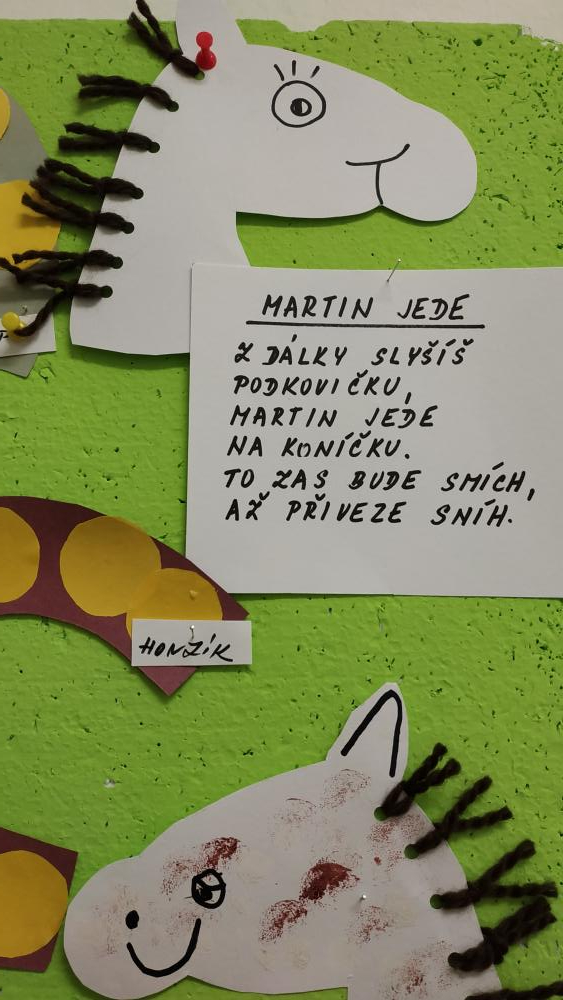 MARTIN JEDE
Z DÁLKY SLYŠÍŠ
PODKOVIČKU,
MARTIN JEDE
NA KONÍČKU.
TO ZAS BUDE SMÍCH,
AŽ PŘIVEZE SNÍH.
HONZÍK